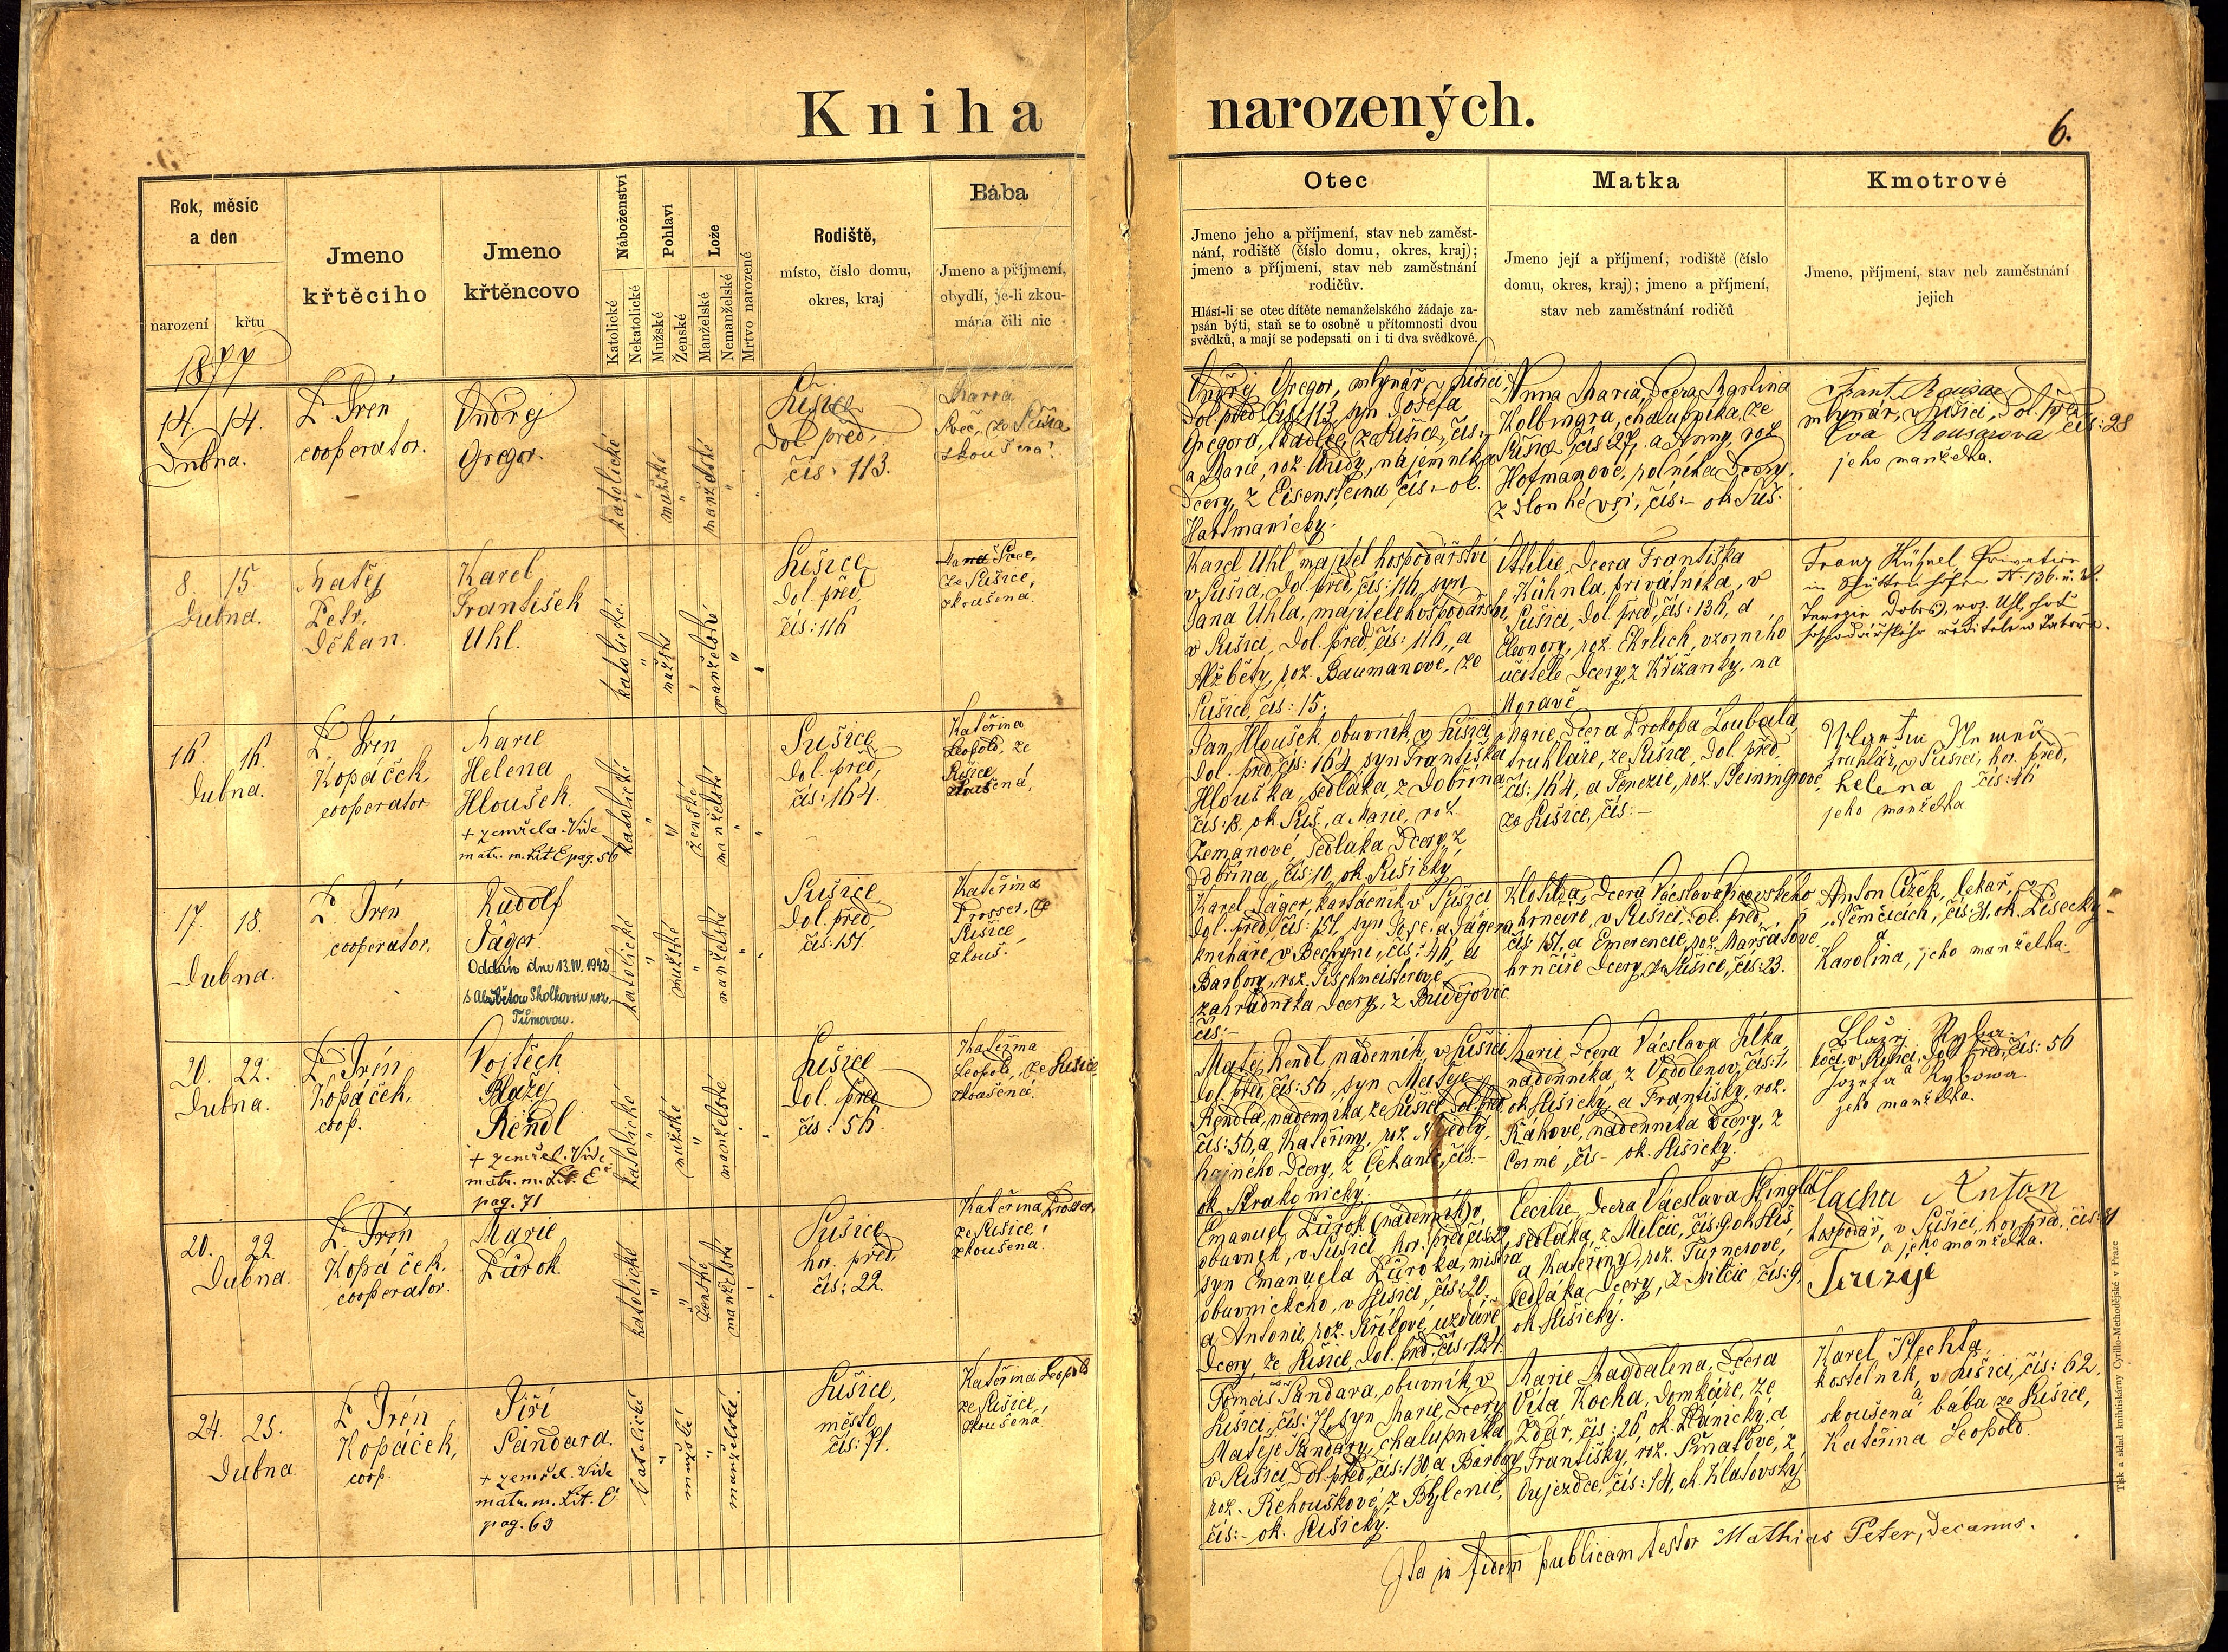 Kniha narozených.
6.
Rok, měsíc
a den
narození
křtu
Jmeno
křtěcího
Jmeno
křtěncovo
Náboženství
Katolické
Nekatolické
Pohlaví
Mužské
Ženské
Lože
Manželské
Nemanželské
Mrtvo narozené
Rodiště,
místo, číslo domu,
okres, kraj
Bába
Jmeno a příjmení,
obydlí, je-li zkou-
mána čili nic
Otec
Jmeno jeho a příjmení, stav neb zaměst-
nání, rodiště (číslo domu, okres, kraj);
jmeno a příjmení, stav neb zaměstnání
rodičův.
Hlásí-li se otec dítěte nemanželského žádaje za-
psán býti, staň se to osobně u přítomnosti dvou
svědků, a mají se podepsati on i ti dva svědkové.
Matka
Jmeno její a příjmení, rodiště (číslo
domu, okres, kraj); jmeno a příjmení,
stav neb zaměstnání rodičů
Kmotrové
Jmeno, příjmení, stav neb zaměstnání
jejich
1877
14. 14.
Dubna.
P. Irén
cooperator.
Ondřej
Gregor.
katolické
mužské
manželské
Sušice
Dol. před,
čís: 113.
ze Sušice
zkoušená
Ondřej Gregor, mlynář v Sušici,
Dol. před čís: 113, syn Josefa
Gregora, ze Sušice, čís:
a Marie, rož. nájemníka
Dcery, z Eisensteina čís:- ok.
Hartmanický.
Anna Maria, Dcera Martina
Kolbingra, chalupníka, ze
Sušice čís 27, a Anny, rož
Hofmanové, rolníka Dcery,
z Dlouhé vsi, čís:- ok Suš.
Frant. Rousar
mlynár, v Sušici, Dol. před. čís: 28
Eva Rousarova
jeho manželka.
8. 15
Dubna.
Matěj
Petr,
Děkan.
Karel
František
Uhl.
katolické
mužské
manželské
Sušice
Dol. před,
čís: 116
ze Sušice,
zkoušená.
Karel Uhl, majitel hospodářství
v Sušici, Dol. před, čís: 116, syn
Jana Uhla, majitele hospodářství,
v Sušici, Dol. před, čís: 116, a
Alžběty, rož. Baumanové, ze
Sušice, čís: 15.
Ottilie, Dcera Františka
Kühnla, privátníka, v
Sušici, Dol. před, čís: 136, a
Eleonory, rož. Ehrlich, vzorního
učitele Dcery, z Křižanky, na
Moravě
Franz Kühnel, Privatier
in Schüttenhofen N: 136. u. d.
roz. Uhl, choť
hospodářského ředitele
16. 16.
Dubna.
P. Irén
Kopáček,
cooperator
Marie
Helena
Hloušek.
+ zemřela. Vide
matr. m. Lit E pag. 56
katolické
ženské
manželské
Sušice,
Dol. před,
čís: 164.
Kateřina
Leopold, ze
Sušice,
zkoušená,
Jan Hloušek, obuvník, v Sušici,
Dol. před, čís: 164, syn Františka
Hlouška, sedláka, z Dobřína
čís: 13. ok Suš., a Marie, rož.
Zemanové, sedláka Dcery, z
Dobřína, čís: 10, ok Sušický
Marie, Dcera Prokopa Loubala,
truhláře, ze Sušice, Dol. před,
čís: 164, a Terezie, rož. Pleiningrové,
ze Sušice, čís:-
truhlář, v Sušici, hor. před,
Helena čís: 16
jeho manželka
17. 18.
Dubna.
P. Irén
cooperator,
Rudolf
Jäger.
Oddán dne 13.IV. 1942
s Alžbětou Skolkovou roz.
Tůmovou.
katolické
mužské
manželské
Sušice,
Dol. před,
čís: 151
Kateřina
Prosser, ze
Sušice,
zkouš.
Karel Jäger, kartáčník v Sušici
Dol. před, čís: 151, syn Josefa Jägera
knihaře, v Bechyni, čís: 46, a
Barbory, rož. Tischmeisterové
zahradníka Dcery, z Budějovic
čís:-
Klotilda, Dcera Václava
hrnčíře, v Sušici, Dol. před,
čís: 151, a Emerencie, rož. Maršátové,
hrnčíře Dcery, ze Sušice, čís: 23.
Anton Čížek, lekař, v
Němčicích, čís: 31, ok. Písecký
a
Karolina, jeho manželka.
20. 22.
Dubna.
P. Irén
Kopáček,
coop.
Vojtěch
Blažej
Rendl
+ zemřel. Vide
matr. m. Lit. E
pag. 71
katolické
mužské
manželské
Sušice
Dol. před,
čís: 56.
Kateřina
Leopold, ze Sušice
zkoušená.
Matěj Rendl, nádenník, v Sušici
Dol. před, čís: 56, syn Matěje
Rendla, nádenníka, ze Sušice, Dol. před
čís: 56, a Kateřiny, rož.
hajného Dcery, z Čekanic, čís:-
ok. Strakonický.
Marie, Dcera Václava Jílka,
nádenníka, z Vodolenov, čís: 1,
ok Sušický, a Františky, rož.
Kákové, nádenníka Dcery, z
čís- ok. Sušický.
Blažej Ryba
kočí, v Sušici, Dol. před, čís: 56
a
Jozefa Rybowa.
jeho manželka.
20. 22.
Dubna.
P. Irén
Kopáček,
cooperator.
Marie
Zůrok.
katolické
ženské
manželské
Sušice,
hor. před,
čís: 22.
Kateřina Prosser,
ze Sušice,
zkoušená.
Emanuel Zůrok (nádenník)
obuvník, v Sušici, hor. před čís: 22,
syn Emanuela Zůroka, mistra
obuvnického, v Sušici, čís: 20.
a Antonie, rož. Králové, uzdáře
Dcery, ze Sušice, Dol. před. čís: 124.
Cecilie, Dcera Václava Stingla
sedláka, z Milčic, čís: 9 ok Suš
a Kateřiny, rož. Turnerové,
sedláka Dcery, z Milčic, čís: 9,
ok Sušický.
Anton
hospodář, v Sušici, hor. před. čís: 31
a jeho manželka.
24. 25.
Dubna.
P. Irén
Kopáček,
coop.
Jiří
Pandara.
+ zemřel. Vide
matr. m. Lit. E
pag. 63
katolické
mužské
manželské.
Sušice,
město,
čís: 71.
Kateřina Leopold
ze Sušice,
zkoušená
Tomáš Pandara, obuvník, v
Sušici, čís: 71, syn Marie, Dcery
Matěje Pandary, chalupníka,
v Sušici, Dol. před, čís: 130 a Barbory
rož. Řehouškové, z
čís:- ok. Sušický.
Marie Magdalena, Dcera
Víta Kocha, domkáře, ze
Zdár, čís: 26, ok. Plánický, a
Františky, rož. Šmatové, z
Oujezdce, čís: 14, ok. Klatovský
Karel Plechta,
kostelník, v Sušici, čís: 62,
a
skoušená bába ze Sušice,
Kateřina Leopold.
Ita in fidem publicam testor Mathias Peter, Decanus.
Tisk a sklad knihtiskárny Cyrillo-Methodějské v Praze